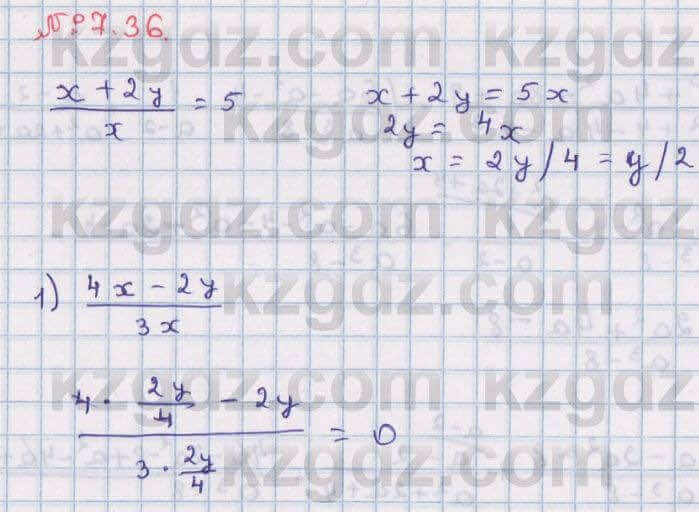 № 7.36.
kzgdz.com kzgdz.com
(x + 2y)/x = 5
x + 2y = 5x
2y = 4x
x = 2y/4 = y/2
kzgdz.com kzgdz.com
1) (4x - 2y)/(3x)
kzgdz.com kzgdz.com
(4 · 2y/4 - 2y)/(3 · 2y/4) = 0
kzgdz.com kzgdz.com